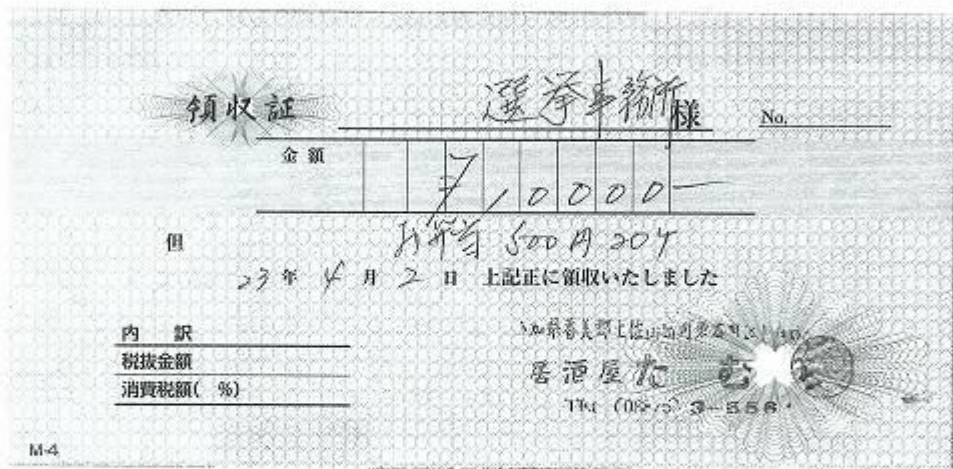 領収証 選挙事務所様 No.
金額 ¥10000-
但 お弁当 500円 20ケ
23年 4月 2日 上記正に領収いたしました
内 訳
税抜金額
消費税額( %)
居酒屋
M-4